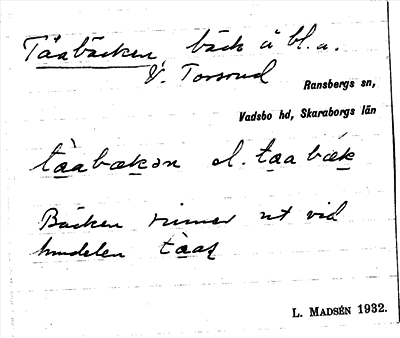 Tåabäcken, bäck å bl.a.
V. Torsrud
Ransbergs sn,
Vadsbo hd, Skaraborgs län
tàabækən el. taabæk
Bäcken rinner ut vid
L. MADSÉN 1932.